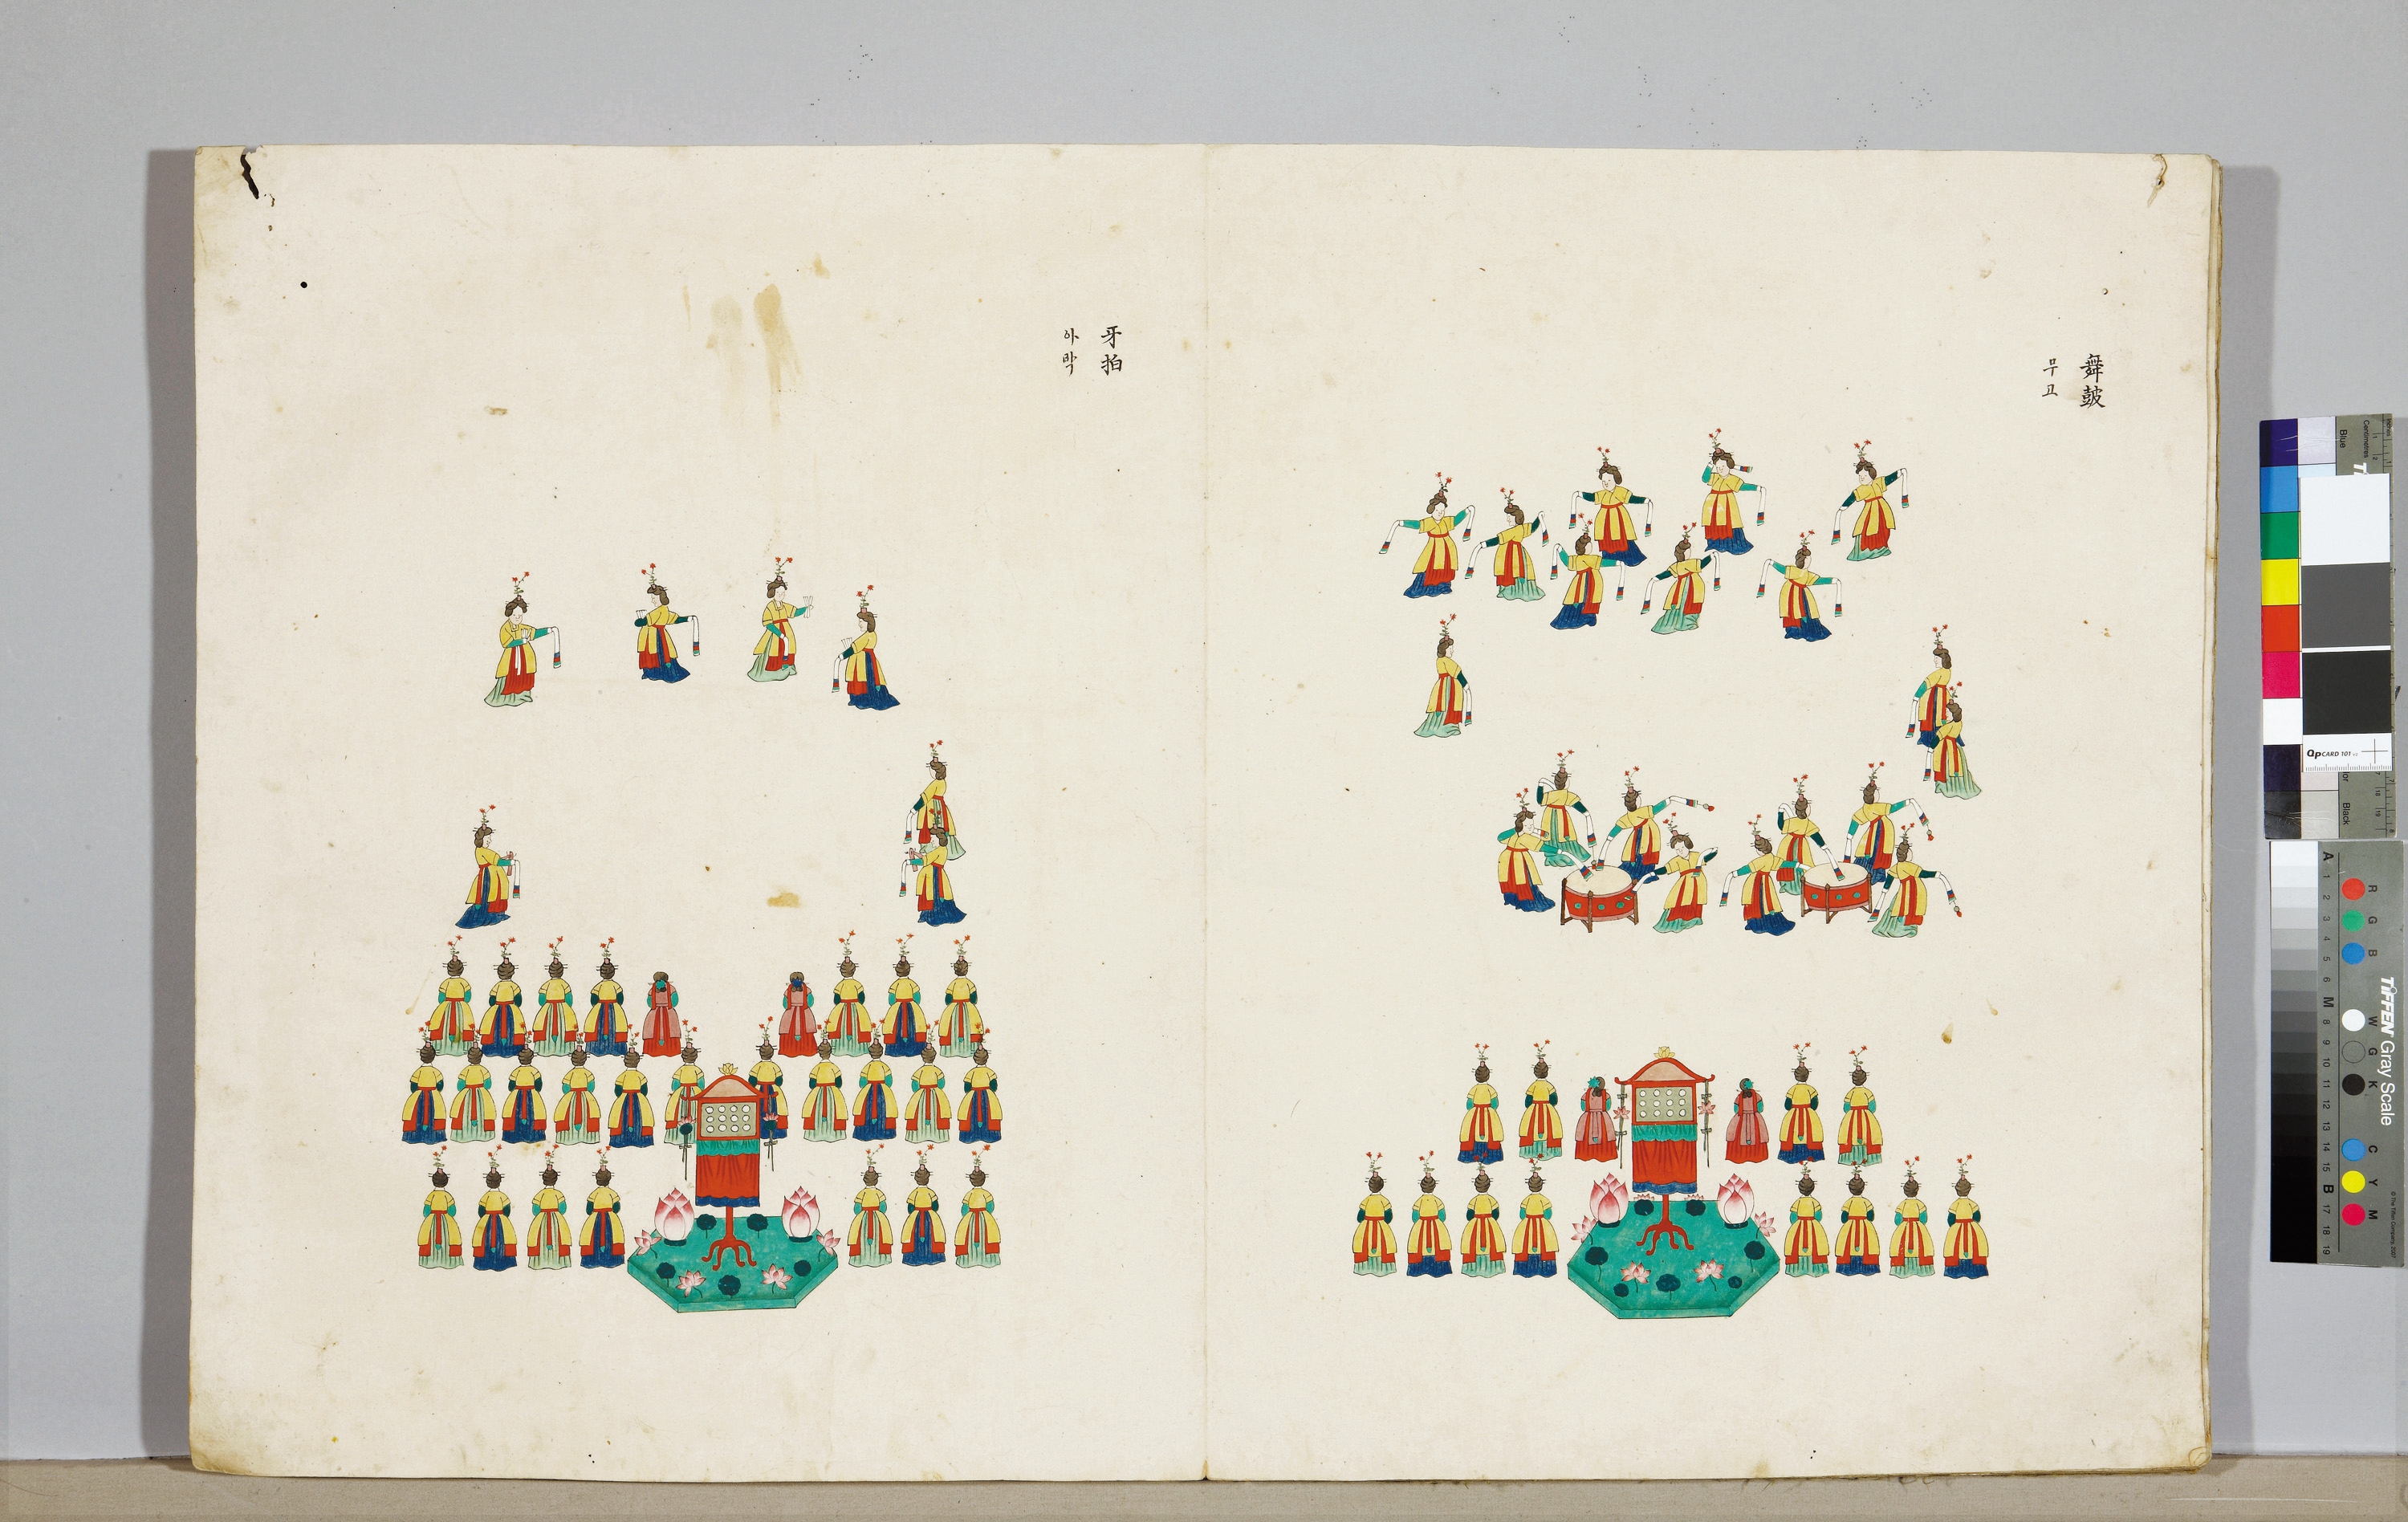 舞皷
무고
牙拍
아박
Blue
Centimetres
Black
QpCARD 101
TIFFEN Gray Scale
© The Tiffen Company, 2007
R
G
B
W
G
K
C
Y
M
A 1 2 3 4 5 6 M 8 9 10 11 12 13 14 15 B 17 18 19